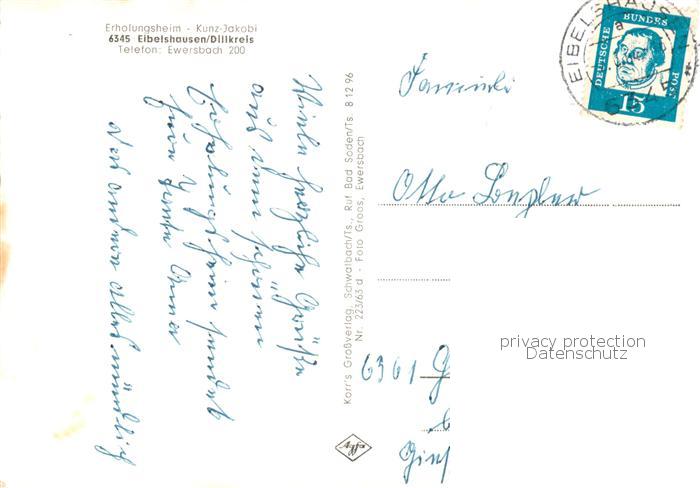 Erholungsheim - Kunz-Jakobi
6345 Eibelshausen/Dillkreis
Telefon: Ewersbach 200
Viele herzliche Grüße
aus dem schönen
Erholungsheim sendet
Eure Tante Anna
das andere alles mündlich
Korr's Großverlag, Schwalbach/Ts., Ruf Bad Soden/Ts. 8 12 96
Nr. 223/63 d - Foto Groos, Ewersbach
Agfa
EIBELSHAUS
a
6345
DEUTSCHE
BUNDES
POST
15
Familie
Otto
6361 G
privacy protection
Datenschutz